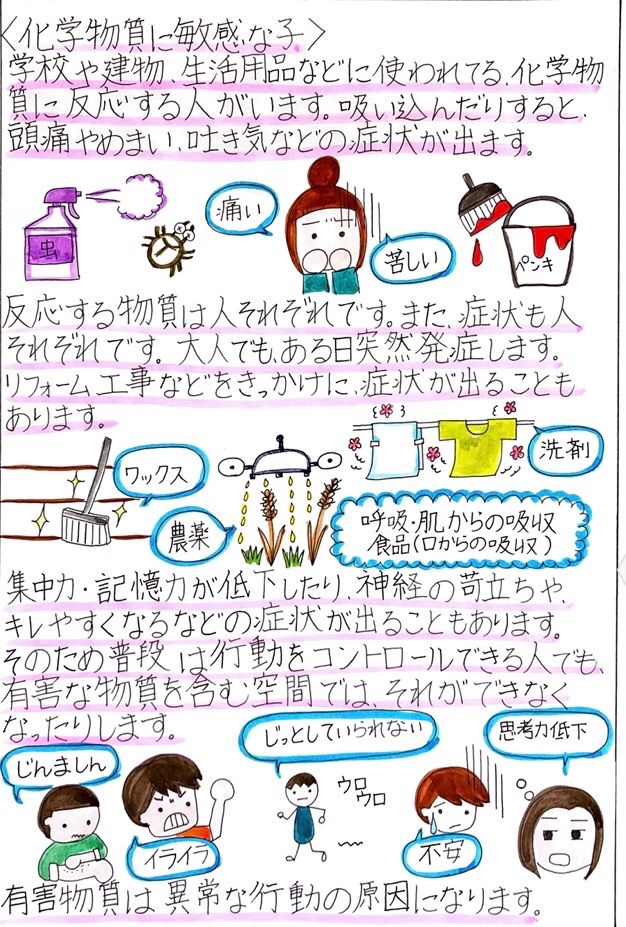 〈化学物質に敏感な子〉
学校や建物、生活用品などに使われてる、化学物
質に反応する人がいます。吸い込んだりすると、
頭痛やめまい、吐き気などの症状が出ます。
虫
痛い
苦しい
ペンキ
反応する物質は人それぞれです。また、症状も人
それぞれです。大人でも、ある日突然発症します。
リフォーム工事などをきっかけに、症状が出ることも
あります。
ワックス
洗剤
農薬
呼吸・肌からの吸収
食品(口からの吸収)
集中力・記憶力が低下したり、神経の苛立ちや、
キレやすくなるなどの症状が出ることもあります。
そのため普段は行動をコントロールできる人でも、
有害な物質を含む空間では、それができなく
なったりします。
じんましん
じっとしていられない
思考力低下
ウロ
ウロ
イライラ
不安
有害物質は異常な行動の原因になります。